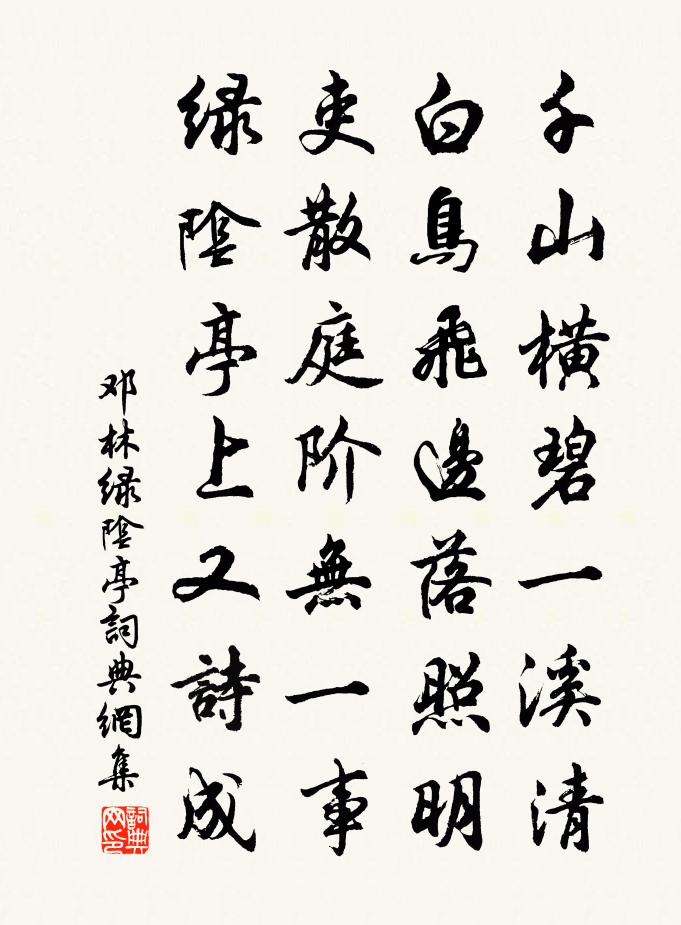 千山橫碧一溪清
白鳥飛邊落照明
吏散庭阶無一事
緑陰亭上又詩成
邓林緑陰亭詞典網集
詞典网印